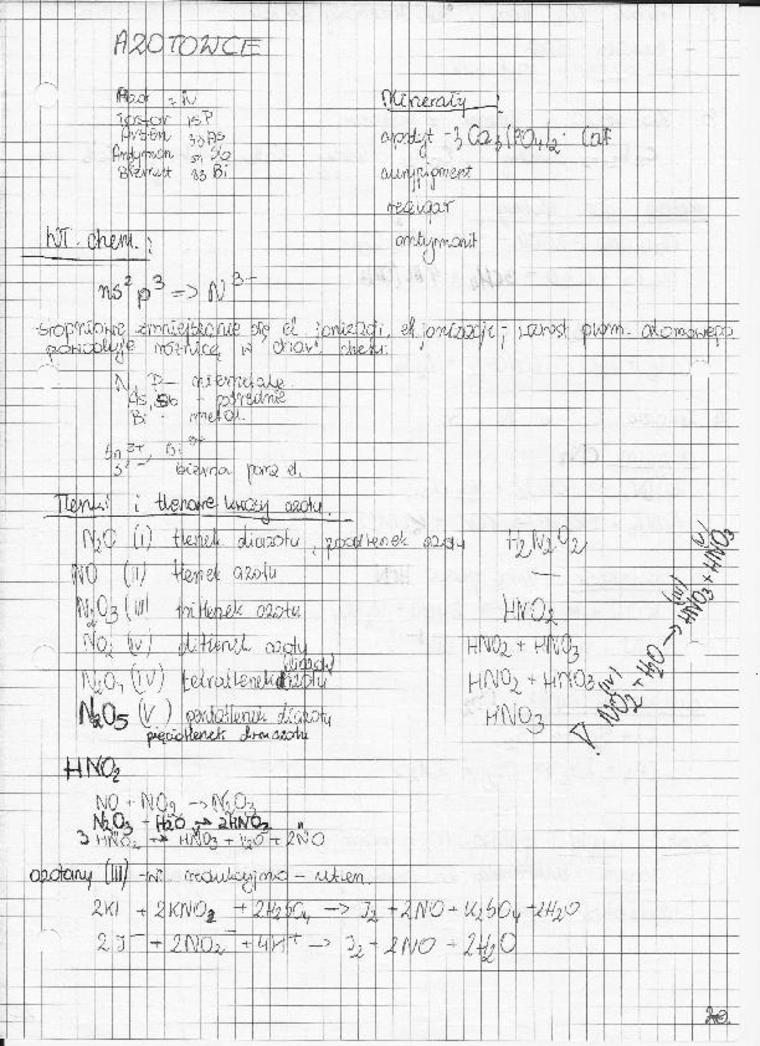 AZOTOWCE
Azot 7N
Fosfor 15P
Arsen 33As
Antymon 51Sb
Bizmut 83Bi
Minerały:
apatyt - 3Ca3(PO4)2 · CaF
aurypigment
realgar
antymonit
Wł. chem.:
ns² p³ => N³⁻
stopniowe zmniejszanie się el. jonizacji, wzrost prom. atomowego
powoduje różnicę w char. chem.
N, P - niemetale
As, Sb - pośrednie
Bi - metal.
bierna para el.
Tlenki i tlenowe kwasy azotu.
N2O (I) tlenek diazotu, podtlenek azotu H2N2O2
NO (II) tlenek azotu —
N2O3 (III) tritlenek azotu HNO2
NO2 (IV) ditlenek azotu HNO2 + HNO3
N2O4 (IV) tetratlenek diazotu HNO2 + HNO3
N2O5 (V) pentatlenek diazotu HNO3
pięciotlenek dwuazotu
NO2 + H2O → HNO3 + HNO2
HNO2
NO + NO2 → N2O3
N2O3 + H2O ⇌ 2HNO2
3HNO2 → HNO3 + H2O + 2NO
azotany (III) - wł. redukcyjno - utlen.
2KI + 2KNO2 + 2H2SO4 → J2 + 2NO + K2SO4 + 2H2O
2J⁻ + 2NO2⁻ + 4H⁺ → J2 + 2NO + 2H2O